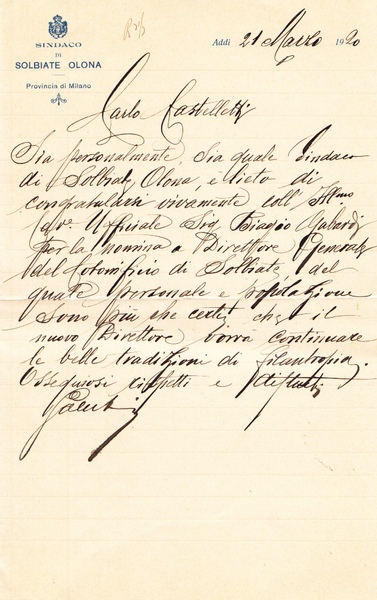 SINDACO
DI
SOLBIATE OLONA
Provincia di Milano
Addì 21 Marzo 1920
Carlo Castelletti
Sia personalmente, sia quale Sindaco
di Solbiate Olona, è lieto di
congratularsi vivamente coll' Ill.mo
Uffiziale Sig. Biagio
per la nomina a Direttore Generale
del Cotonificio di Solbiate, del
quale personale e popolazione
sono più che certi, che il
nuovo Direttore vorrà continuare
le belle tradizioni di filantropia.
Ossequiosi rispetti e distinti
Saluti